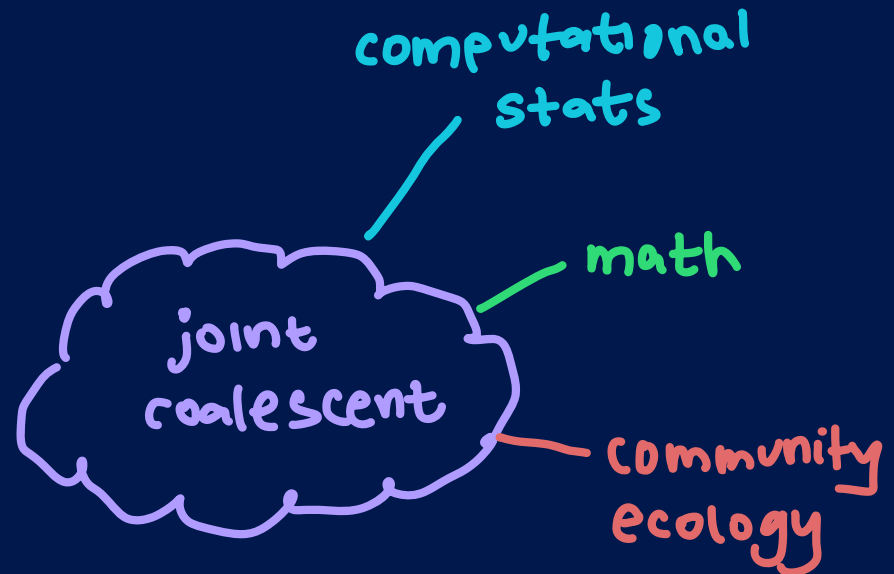 computational
stats
math
joint
coalescent
community
ecology